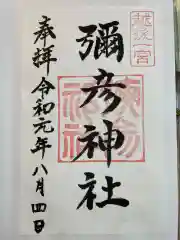 越後一宮
彌彦神社
奉拝 令和元年八月四日